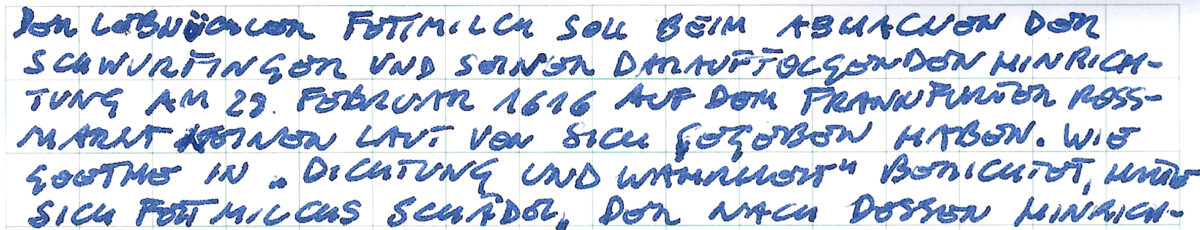 DER LEBKÜCHLER FETTMILCH SOLL BEIM ABHACKEN DER
SCHWURFINGER UND SEINER DARAUFFOLGENDEN HINRICH-
TUNG AM 28. FEBRUAR 1616 AUF DEM FRANKFURTER ROSS-
MARKT KEINEN LAUT VON SICH GEGEBEN HABEN. WIE
GOETHE IN „DICHTUNG UND WAHRHEIT" BERICHTET, HABE
SICH FETTMILCHS SCHÄDEL, DER NACH DESSEN HINRICH-